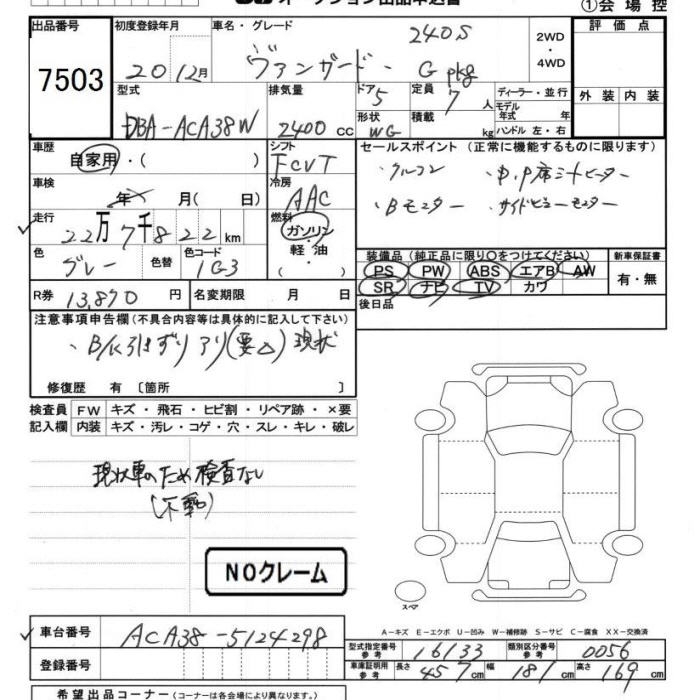 オークション出品申込書
①会場控
出品番号 初度登録年月 車名・グレード 評価点
7503 20 12月 ヴァンガード・240S G pkg 2WD・4WD
型式 排気量 ドア 定員 ディーラー・並行 外装 内装
DBA-ACA38W 2400cc 5 7人 モデル年式 年
形状 積載
WG kg ハンドル 左・右
車歴 シフト セールスポイント (正常に機能するものに限ります)
自家用・( ) FCVT ・クルコン ・P席シートヒーター
車検 冷房 ・Bモニター ・サイドビューモニター
年 月( 日) AAC
走行 燃料
22万7千822km ガソリン・軽・油・
色 色替 色コード 装備品 (純正品に限り○をつけてください) 新車保証書
グレー 1G3 PS PW ABS エアB AW 有・無
SR ナビ TV カワ
R券 13,870円 名変期限 月 日 後日品
注意事項申告欄(不具合内容等は具体的に記入して下さい)
・B/K引きずりアリ(要△)現状
修復歴 有 [箇所 ]
検査員 FW キズ・飛石・ヒビ割・リペア跡・×要
記入欄 内装 キズ・汚レ・コゲ・穴・スレ・キレ・破レ
現状車のため検査なし
(不動)
NOクレーム
スペア
A-キズ E-エクボ U-凹み W-補修跡 S-サビ C-腐食 XX-交換済
車台番号 ACA38-5124298
型式指定番号 参考 16133 類別区分番号 参考 0056
登録番号
車庫証明用 参考 長さ 457cm 幅 181cm 高さ 169cm
希望出品コーナー (コーナーは各会場により異なります。)